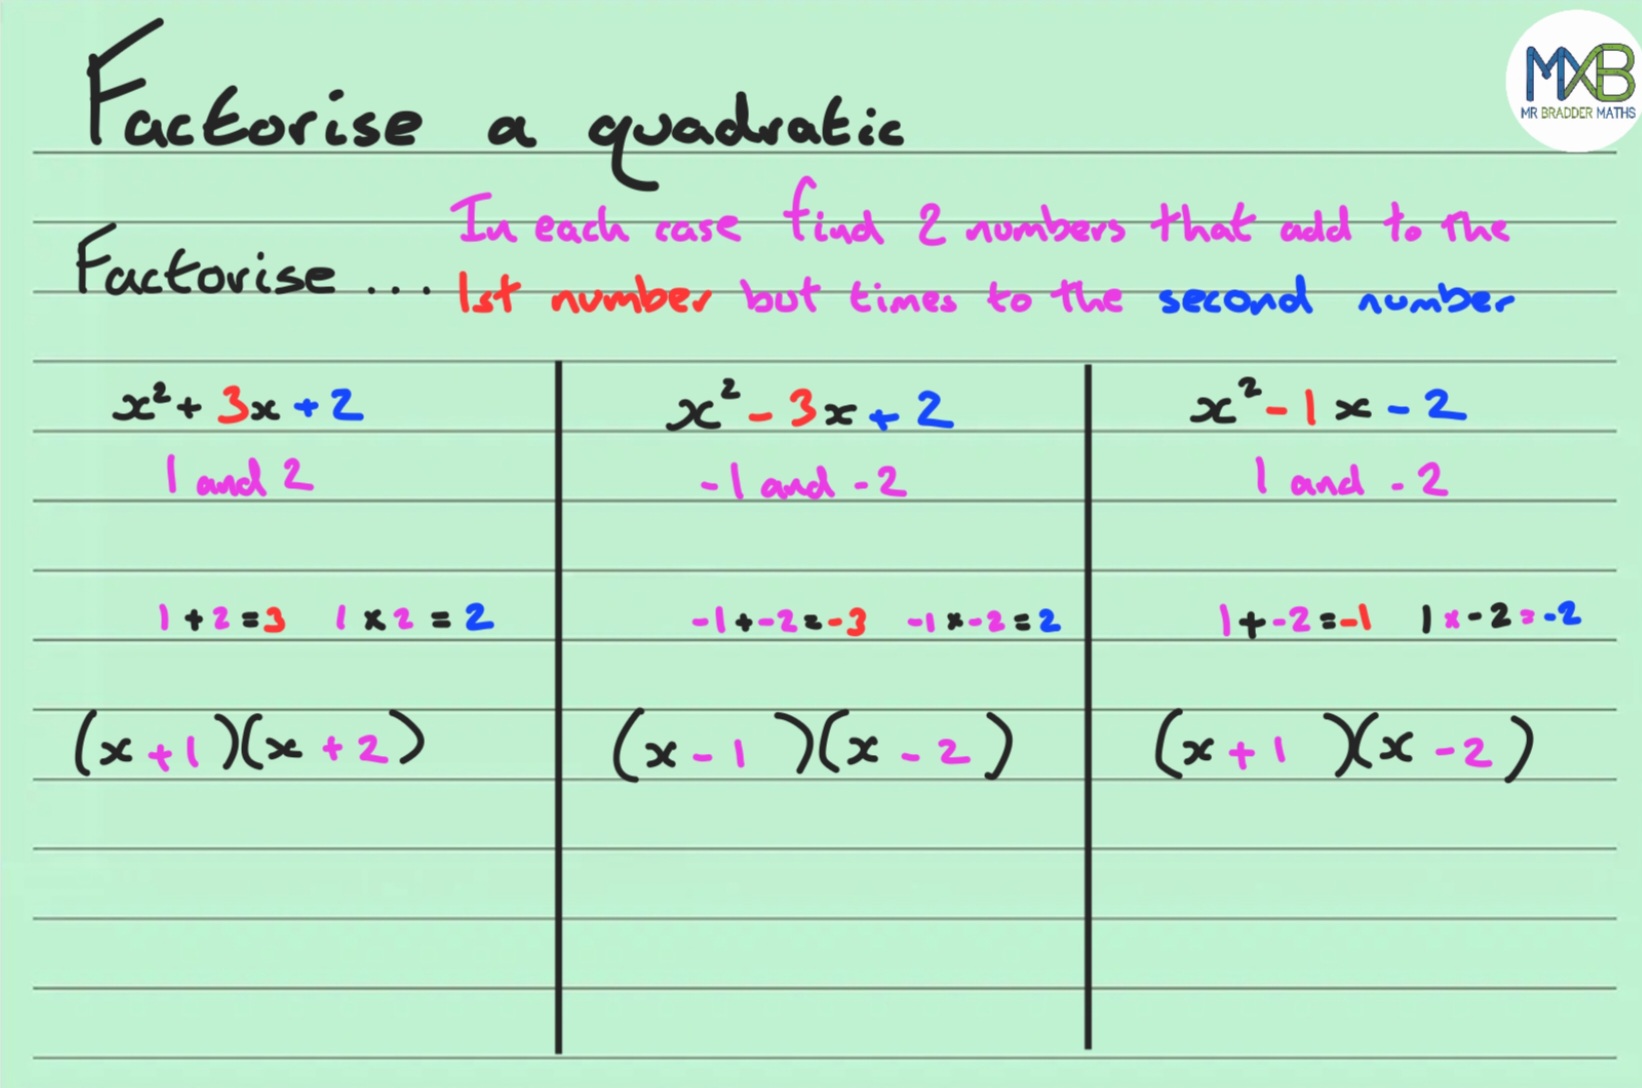 Factorise a quadratic
MXB
MR BRADDER MATHS
Factorise ...
In each case find 2 numbers that add to the
1st number but times to the second number
x² + 3x + 2
1 and 2
1 + 2 = 3 1 x 2 = 2
(x + 1)(x + 2)
x² - 3x + 2
-1 and -2
-1 + -2 = -3 -1 x -2 = 2
(x - 1)(x - 2)
x² - 1x - 2
1 and -2
1 + -2 = -1 1 x -2 = -2
(x + 1)(x - 2)